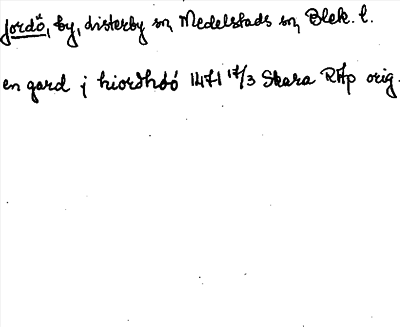 Jordö, by, Listerby sn, Medelstads sn, Blek. l.
en gard j hiordhdó 1471 17/3 Skara RAp orig.